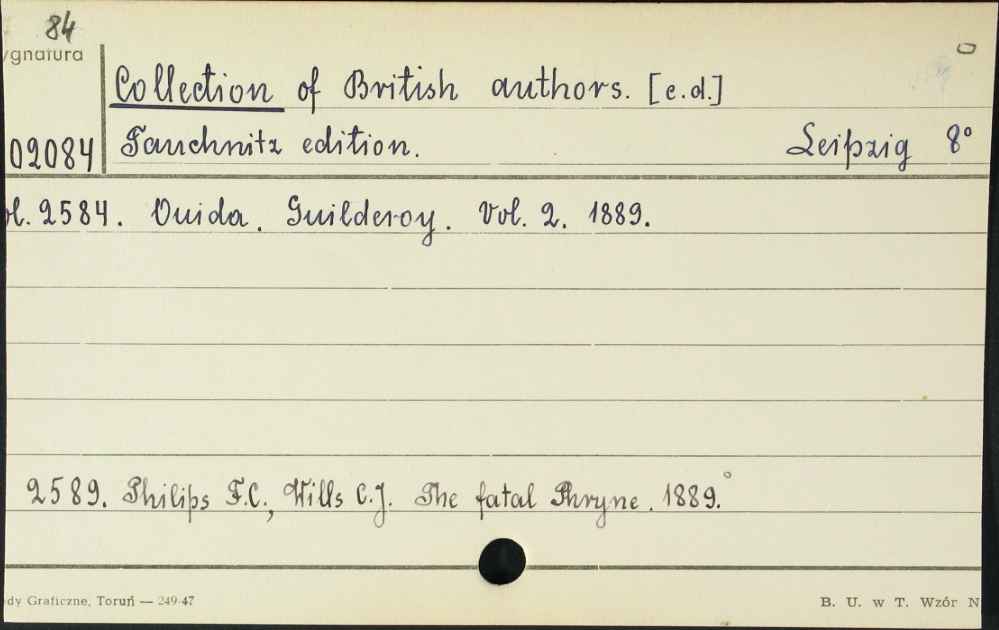 84
ygnatura
Collection of British authors. [e.d.]
02084 Tauchnitz edition. Leipzig 8°
ol. 2584. Ouida. Guilderoy. Vol. 2. 1889.
2589. Philips F.C., Wills C.J. The fatal Phryne. 1889.
dy Graficzne, Toruń — 249-47 B. U. w T. Wzór N